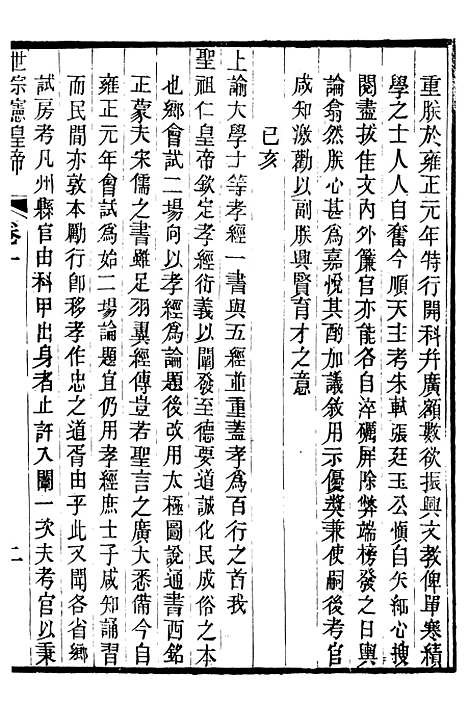 重朕於雍正元年特行開科幷廣額數欲振興文教俾單寒積
學之士人人自奮今順天主考朱軾張廷玉公愼自矢細心搜
閱盡拔佳文內外簾官亦能各自淬礪屏除弊端榜發之日輿
論翕然朕心甚爲嘉悅其酌加議敘用示優獎兼使嗣後考官
咸知激勸以副朕興賢育才之意
己亥
上諭大學士等孝經一書與五經並重蓋孝爲百行之首我
聖祖仁皇帝欽定孝經衍義以闡發至德要道誠化民成俗之本
也鄉會試二場向以孝經爲論題後改用太極圖說通書西銘
正蒙夫宋儒之書雖足羽翼經傳豈若聖言之廣大悉備今自
雍正元年會試爲始二場論題宜仍用孝經庶士子咸知誦習
而民間亦敦本勵行卽移孝作忠之道胥由乎此又聞各省鄉
試房考凡州縣官由科甲出身者止許入闈一次夫考官以秉
世宗憲皇帝 卷一 二